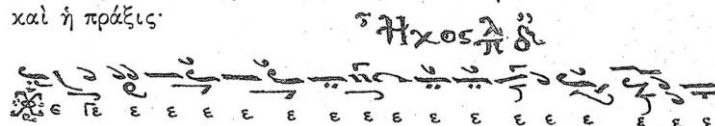 καὶ ἡ πράξις·
Ἦχος λ π δ
ε ε ε ε ε ε ε ε ε ε ε ε ε ε ε ε ε ε